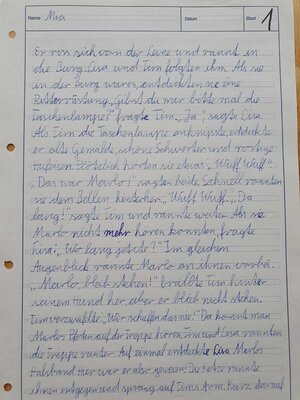 Name Mia Datum Blatt 1
Er riss sich von der Leine und rannte in
die Burg. Lisa und Tim folgten ihm. Als sie
in der Burg waren, entdeckten sie eine
Ritterrüstung. „Gibst du mir bitte mal die
Taschenlampe?" fragte Tim. „Ja", sagte Lisa.
Als Tim die Taschenlampe anknipste, entdeckte
er alte Gemälde, schöne Schwerter und rostige
Hufeisen. Plötzlich hörten sie etwas: „Wuff Wuff"
„Das war Marlo!" sagten beide. Schnell rannten
sie dem Bellen hinterher. „Wuff Wuff" „Da
lang!" sagte Tim und rannte weiter. Als sie
Marlo nicht mehr hören konnten, fragte
Lisa: „Wo lang jetzt?" Im gleichen
Augenblick rannte Marlo an ihnen vorbei.
„Marlo, bleib stehen!" brüllte Tim hinter
seinem Hund her, aber er blieb nicht stehen.
Tim verzweifelte „Wir schaffen das nie!" Da konnte man
Marlos Pfoten auf der Treppe hören. Tim und Lisa rannten
die Treppe runter. Auf einmal entdeckte Lisa Marlos
Halsband. Hier war er also gewesen. Die Katze rannte
ihnen entgegen und sprang auf Tims Arm. Kurz darauf